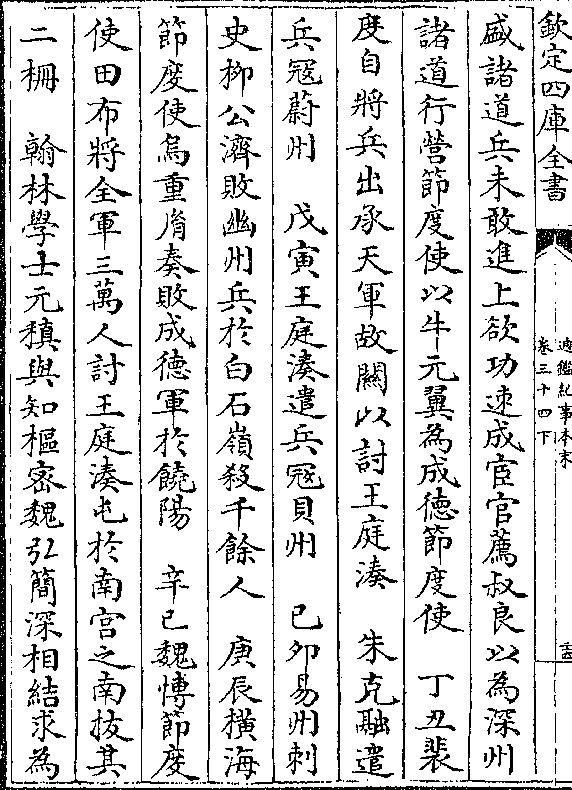 欽定四庫全書
通鑑紀事本末
卷三十四下
盛諸道兵未敢進上欲功速成宦官薦叔良以為深州
諸道行營節度使以牛元翼為成德節度使　丁丑裴
度自將兵出承天軍故關以討王庭湊　朱克融遣
兵寇蔚州　戊寅王庭湊遣兵寇貝州　己卯易州刺
史柳公濟敗幽州兵於白石嶺殺千餘人　庚辰橫海
節度使烏重𦙍奏敗成德軍於饒陽　辛巳魏博節度
使田布將全軍三萬人討王庭湊屯於南宮之南拔其
二柵　翰林學士元稹與知樞密魏弘簡深相結求為